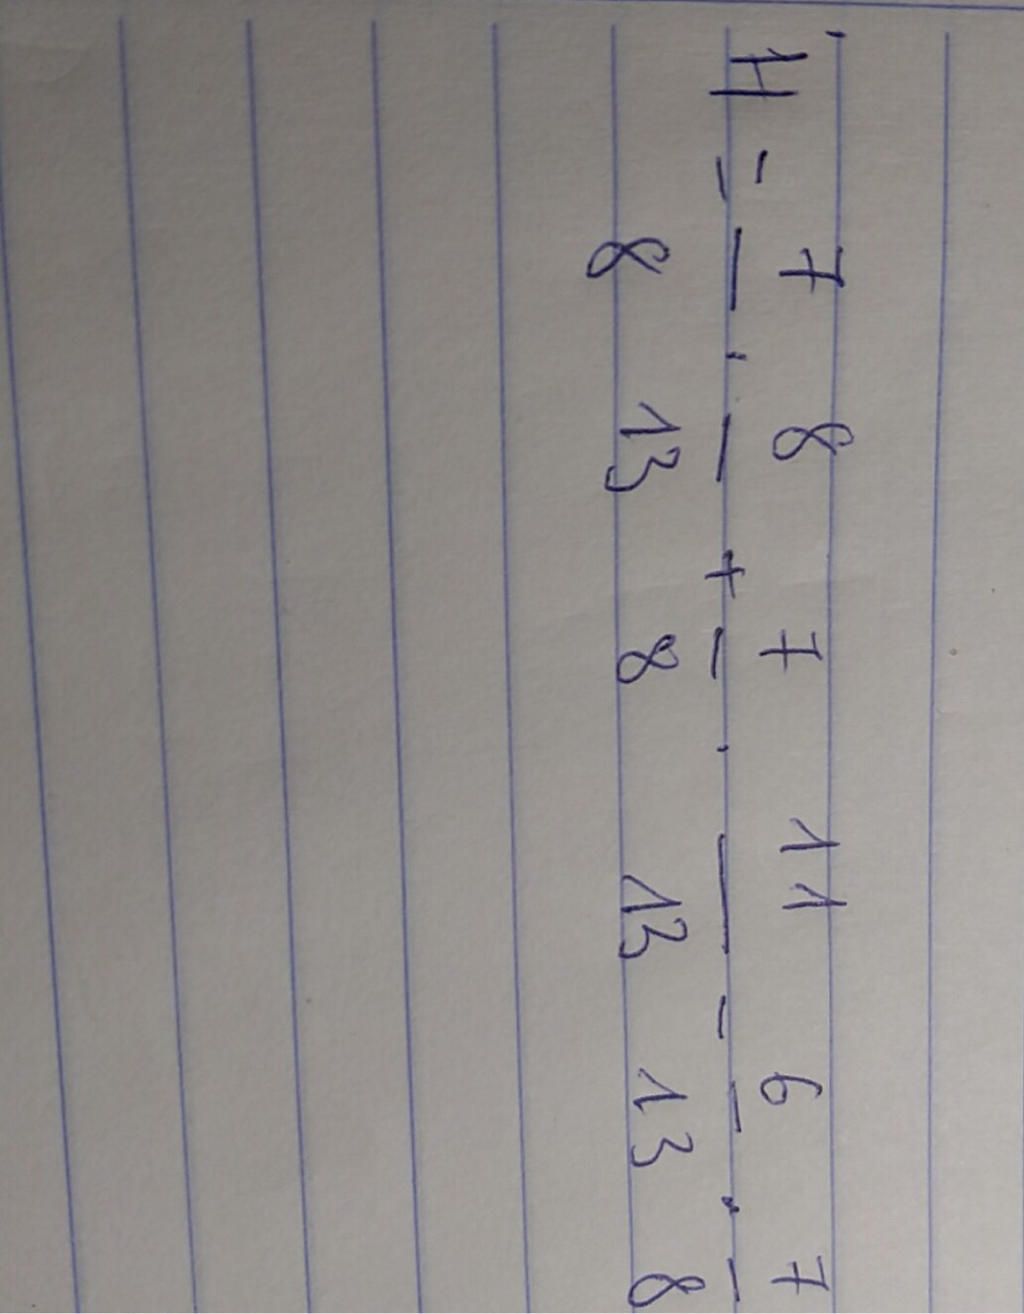 H = 7/8 . 8/13 + 7/8 . 11/13 - 6/13 . 7/8